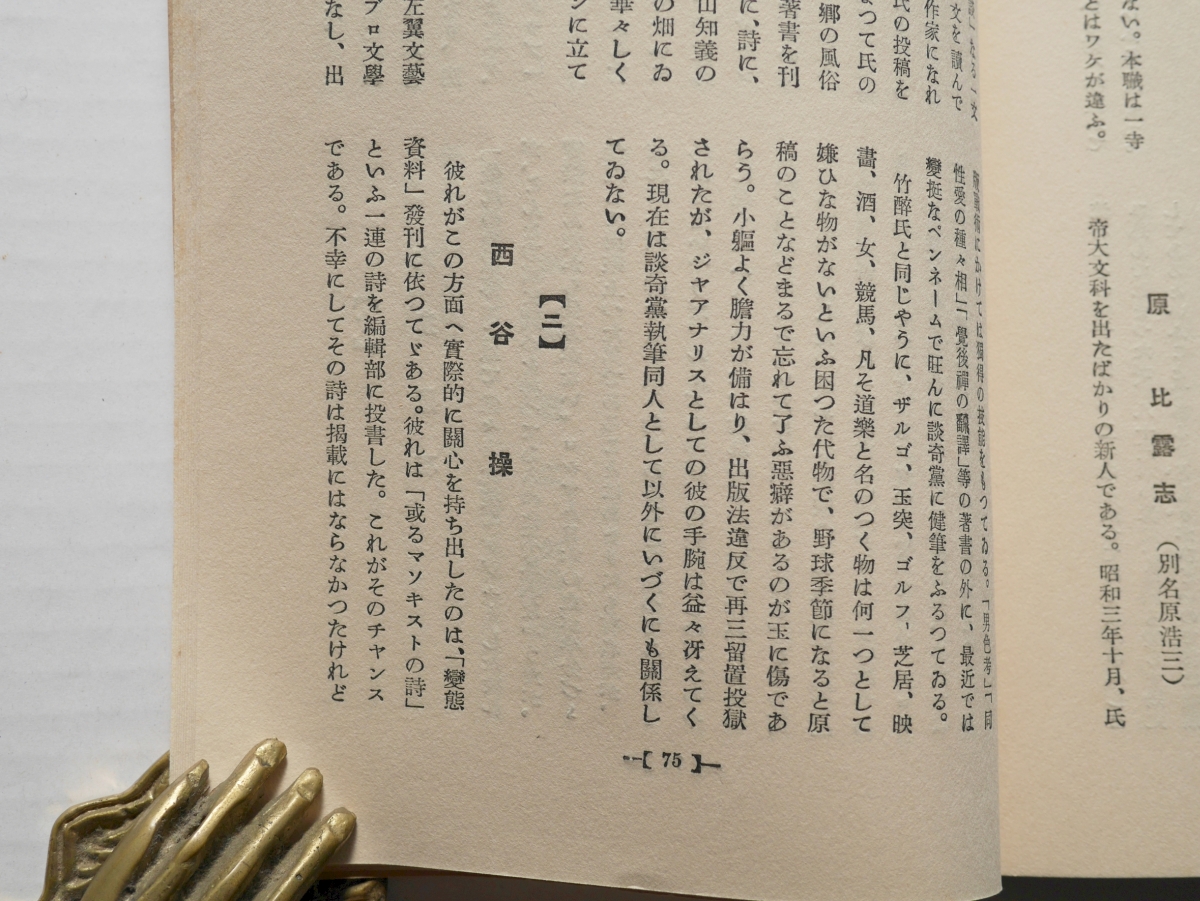 ない。本職は一寺
とはワケが違ふ。
原比露志（別名原浩三）
帝大文科を出たばかりの新人である。昭和三年十月、氏
たる一文
文を讀んで
作家になれ
氏の投稿を
つて氏の
郷の風俗
著書を刊
に、詩に、
山知義の
の畑にゐ
華々しく
ンに立て
左翼文藝
プロ文學
なし、出
術にかけては獨得の技能をもつてゐる。「男色考」「同
性愛の種々相」「覺後禪の飜譯」等の著書の外に、最近では
變挺なペンネームで旺んに談奇黨に健筆をふるつてゐる。
竹醉氏と同じやうに、ザルゴ、玉突、ゴルフ、芝居、映
畵、酒、女、競馬、凡そ道樂と名のつく物は何一つとして
嫌ひな物がないといふ困つた代物で、野球季節になると原
稿のことなどまるで忘れて了ふ惡癖があるのが玉に傷であ
らう。小軀よく膽力が備はり、出版法違反で再三留置投獄
されたが、ジャアナリスとしての彼の手腕は益々冴えてく
る。現在は談奇黨執筆同人として以外にいづくにも關係し
てゐない。
【二】
西谷操
彼れがこの方面へ實際的に關心を持ち出したのは、「變態
資料」發刊に依つてゞある。彼れは「或るマソキストの詩」
といふ一連の詩を編輯部に投書した。これがそのチャンス
である。不幸にしてその詩は揭載にはならなかつたけれど
【75】